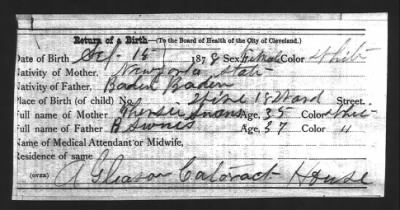 Return of a Birth—(To the Board of Health of the City of Cleveland.)
Date of Birth 15 1878 Sex Female Color white
Nativity of Mother, Newyork state
Nativity of Father, Baden Baden
Place of Birth (of child) No. 18 Ward Street.
Full name of Mother Age, 35 Color white
Full name of Father Age, 37 Color "
Name of Medical Attendant or Midwife,
Residence of same
(OVER) A Gleason Cataract House